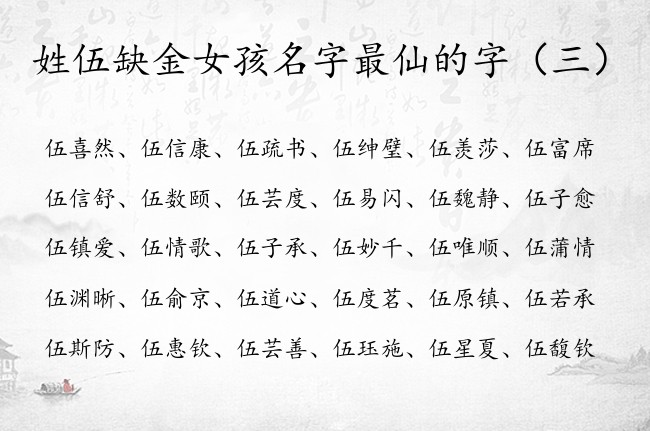 姓伍缺金女孩名字最仙的字（三）
伍喜然、伍信康、伍疏书、伍绅璧、伍羡莎、伍富席
伍信舒、伍数颐、伍芸度、伍易闪、伍魏静、伍子愈
伍镇爱、伍情歌、伍子承、伍妙千、伍唯顺、伍蒲情
伍渊晰、伍俞京、伍道心、伍度茗、伍原镇、伍若承
伍斯防、伍惠钦、伍芸善、伍珏施、伍星夏、伍馥钦